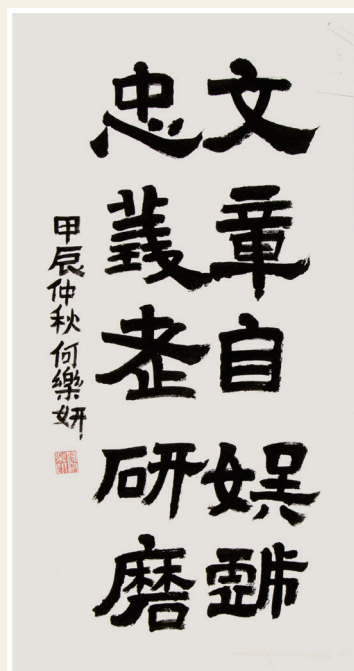 文章自娛戲
忠義老研磨
甲辰仲秋何樂妍